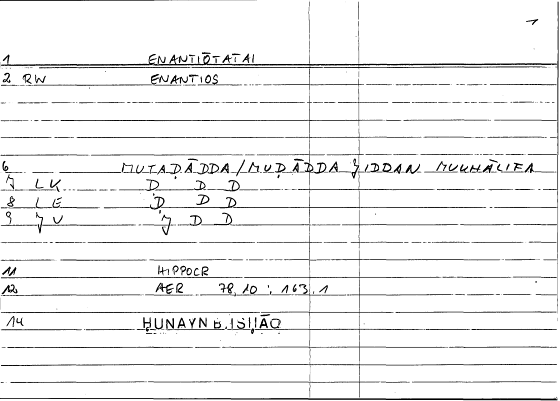 1
1 ENANTIŌTATAI
2 RW ENANTIOS
6 MUTAḌĀDDA / MUḌĀDDA ǦIDDAN MUKHĀLIFA
7 LK Ḍ D D
8 LE Ḍ D D
9 JU J D D
11 HIPPOCR
12 AER 78,10 : 163,1
14 ḤUNAYN B. ISḤĀQ